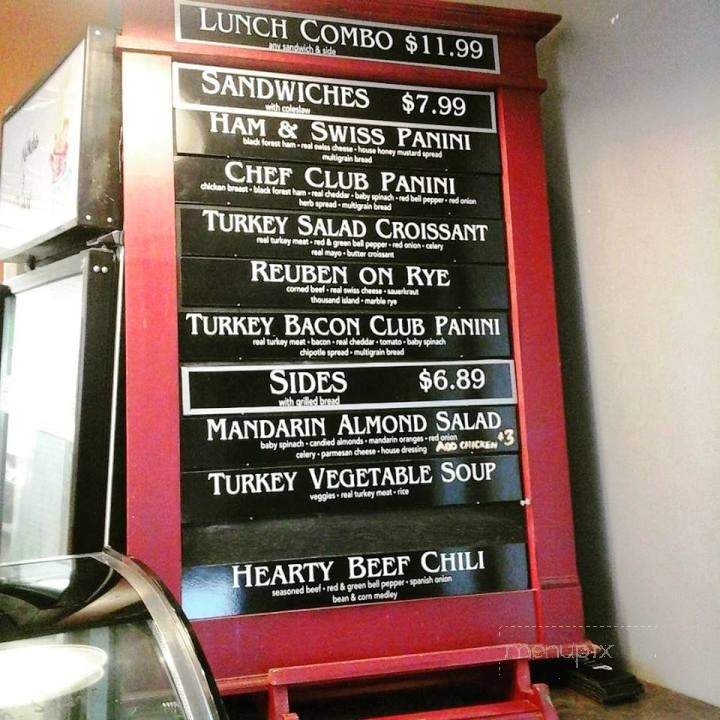 LUNCH COMBO $11.99
any sandwich & side
SANDWICHES $7.99
with coleslaw
HAM & SWISS PANINI
black forest ham • real swiss cheese • house honey mustard spread
multigrain bread
CHEF CLUB PANINI
chicken breast • black forest ham • real cheddar • baby spinach • red bell pepper • red onion
herb spread • multigrain bread
TURKEY SALAD CROISSANT
real turkey meat • red & green bell pepper • red onion • celery
real mayo • butter croissant
REUBEN ON RYE
corned beef • real swiss cheese • sauerkraut
thousand island • marble rye
TURKEY BACON CLUB PANINI
real turkey meat • bacon • real cheddar • tomato • baby spinach
chipotle spread • multigrain bread
SIDES $6.89
with grilled bread
MANDARIN ALMOND SALAD
baby spinach • candied almonds • mandarin oranges • red onion
celery • parmesan cheese • house dressing ADD CHICKEN $3
TURKEY VEGETABLE SOUP
veggies • real turkey meat • rice
HEARTY BEEF CHILI
seasoned beef • red & green bell pepper • spanish onion
bean & corn medley
menupix